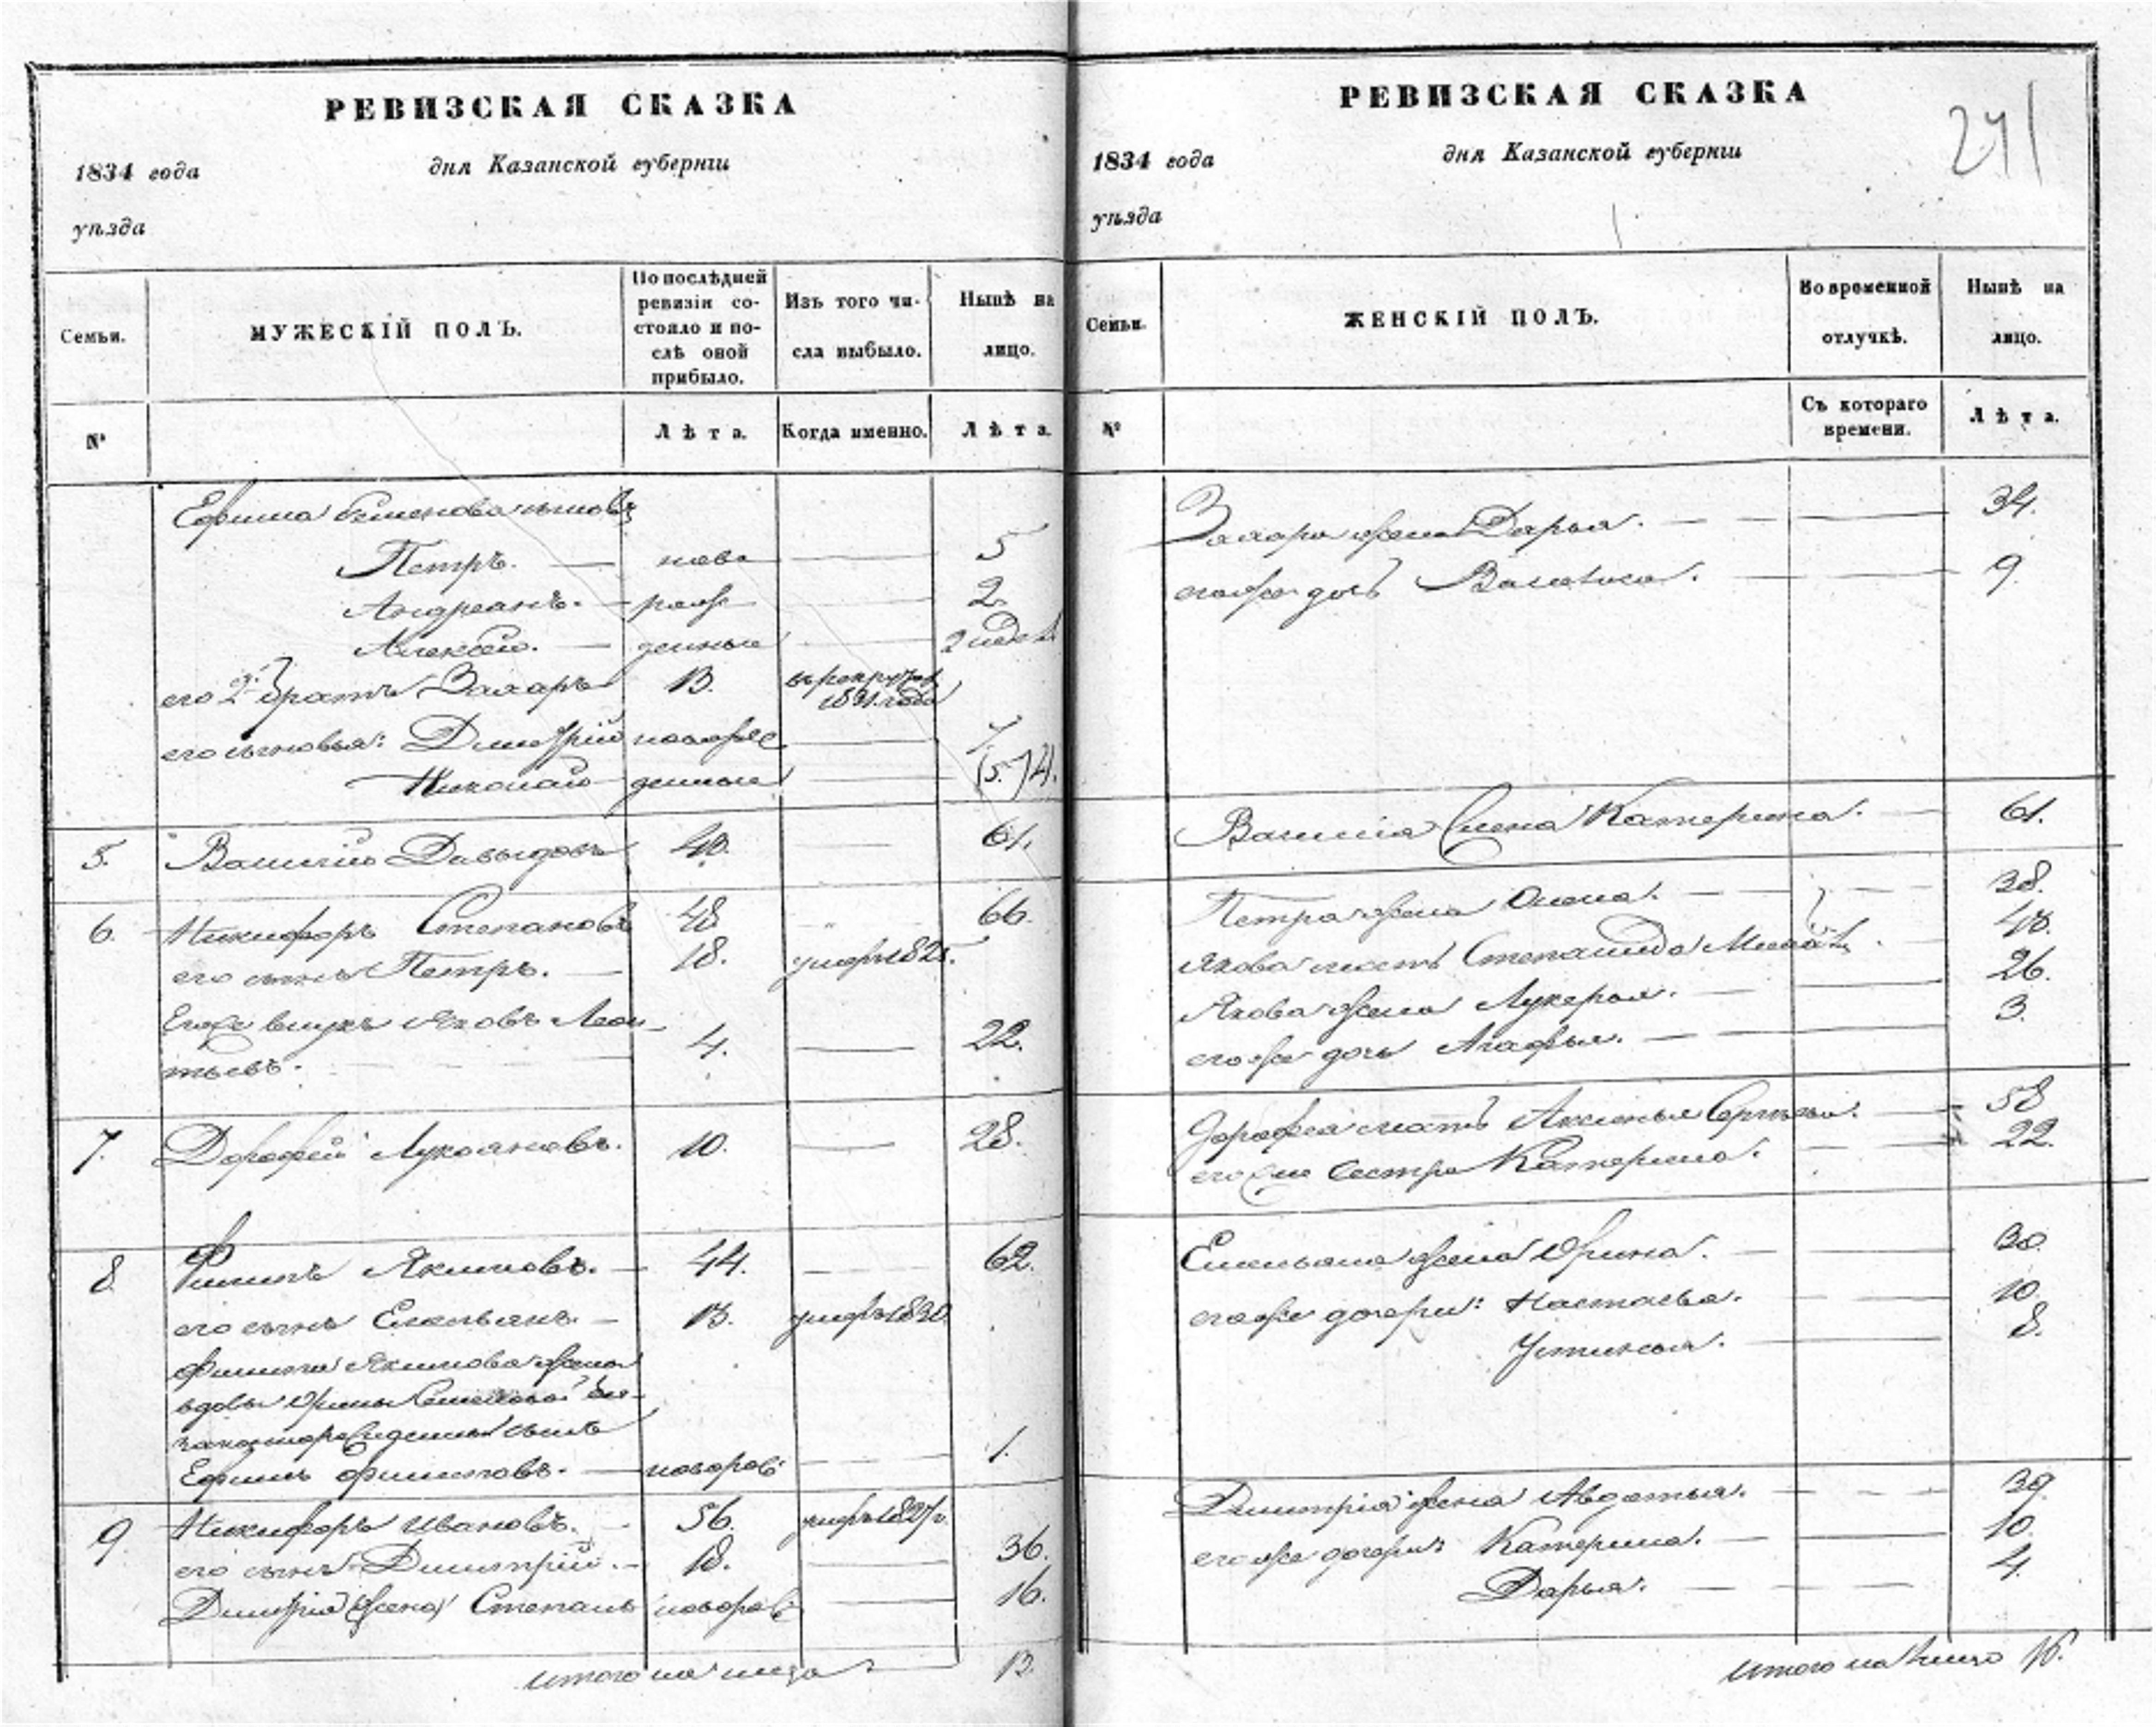 РЕВИЗСКАЯ СКАЗКА
1834 года дня Казанской губернiи
уѣзда
Семьи.
МУЖЕСКIЙ ПОЛЪ.
По послѣдней
ревизiи со-
стояло и по-
слѣ оной
прибыло.
Изъ того чи-
сла выбыло.
Нынѣ на
лицо.
№
Лѣта.
Когда именно.
Лѣта.
Ефима Семенова сыновья
Петръ. — ново — 5
Андреанъ. — рож — 2.
Алексѣй. — денные — 2 недел.
его 2й братъ Захаръ 13. въ рекруты
1831. года
его сыновья: Дмитрiй новорже — 7.
Николай денные — (5.) 4.
5. Василiй Давыдовъ 43. — 61.
6. Никифоръ Степановъ 48 66.
его сынъ Петръ. — 18. умеръ 1825.
Егоже внукъ Яковъ Леон-
тьевъ. 4. — 22.
7. Дорофей Лукояновъ. 10. — 28.
8. Филипъ Якимовъ. — 44. — 62.
его сынъ Емельянъ. — 13. умеръ 1830.
Филипа Якимова жены
вдовы Орины Семеновой
сынъ
Ефимъ Филиповъ. — новорож. — 1.
9. Никифоръ Ивановъ. — 56. умеръ 1827 г.
его сынъ Димитрiй. — 18. — 36.
Димитрiя (жена) Степанъ новорож — 16.
итого на лицо — 13.
241
РЕВИЗСКАЯ СКАЗКА
1834 года дня Казанской губернiи
уѣзда
Семьи.
ЖЕНСКIЙ ПОЛЪ.
Во временной
отлучкѣ.
Нынѣ на
лицо.
№
Съ котораго
времени.
Лѣта.
Захара жена Дарья. — 34.
егоже дочь — 9.
Василiя жена Катерина. — 61.
Петра жена Олена. — 38.
Якова мать Степанида 48.
Якова жена Лукерья. — 26.
егоже дочь Агафья. — 3.
Дорофея мать Аксинья Сергѣева. — 58
его же сестра Катерина. — 22.
Емельяна жена Орина. — 30.
егоже дочери: Настасья. — 10.
Устинья. — 8.
Димитрiя жена Авдотья. — 39.
егоже дочери: Катерина. — 10.
Дарья. — 4.
итого на лицо 16.